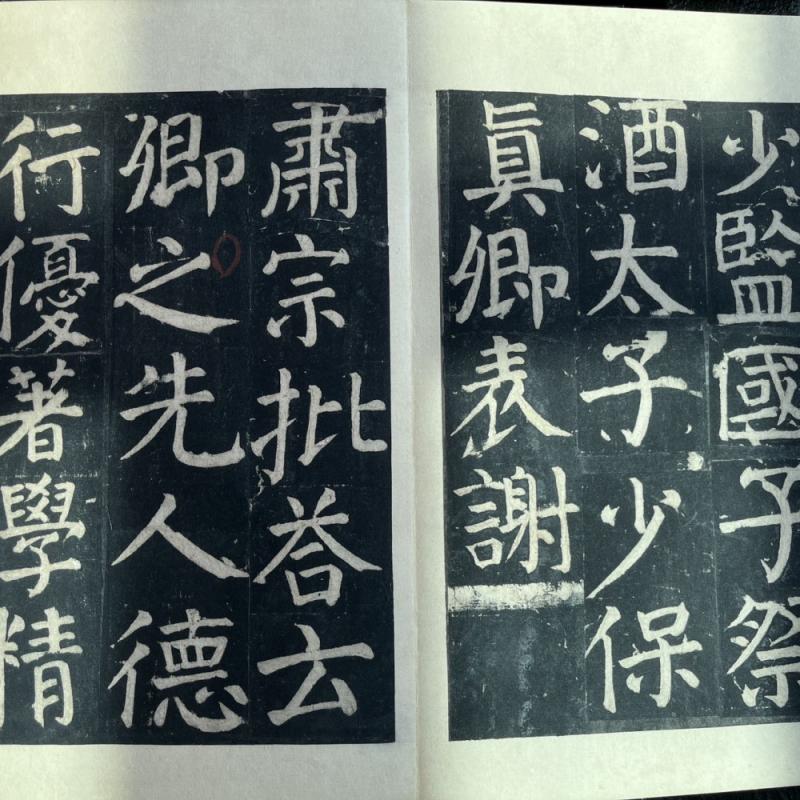 少監國子祭
酒太子少保
真卿表謝
肅宗批荅云
卿之先人德
行優著學精